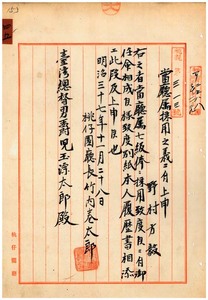 當廳屬採用之義ニ付上申
野村方毅
右之者當廳屬七級俸採用致度候ニ付御
任命相成候樣致度別紙本人履歷書相添
此段及上申候也
明治三十七年十一月二十八日
桃仔園廳長竹內卷太郎
臺灣總督男爵兒玉源太郎殿